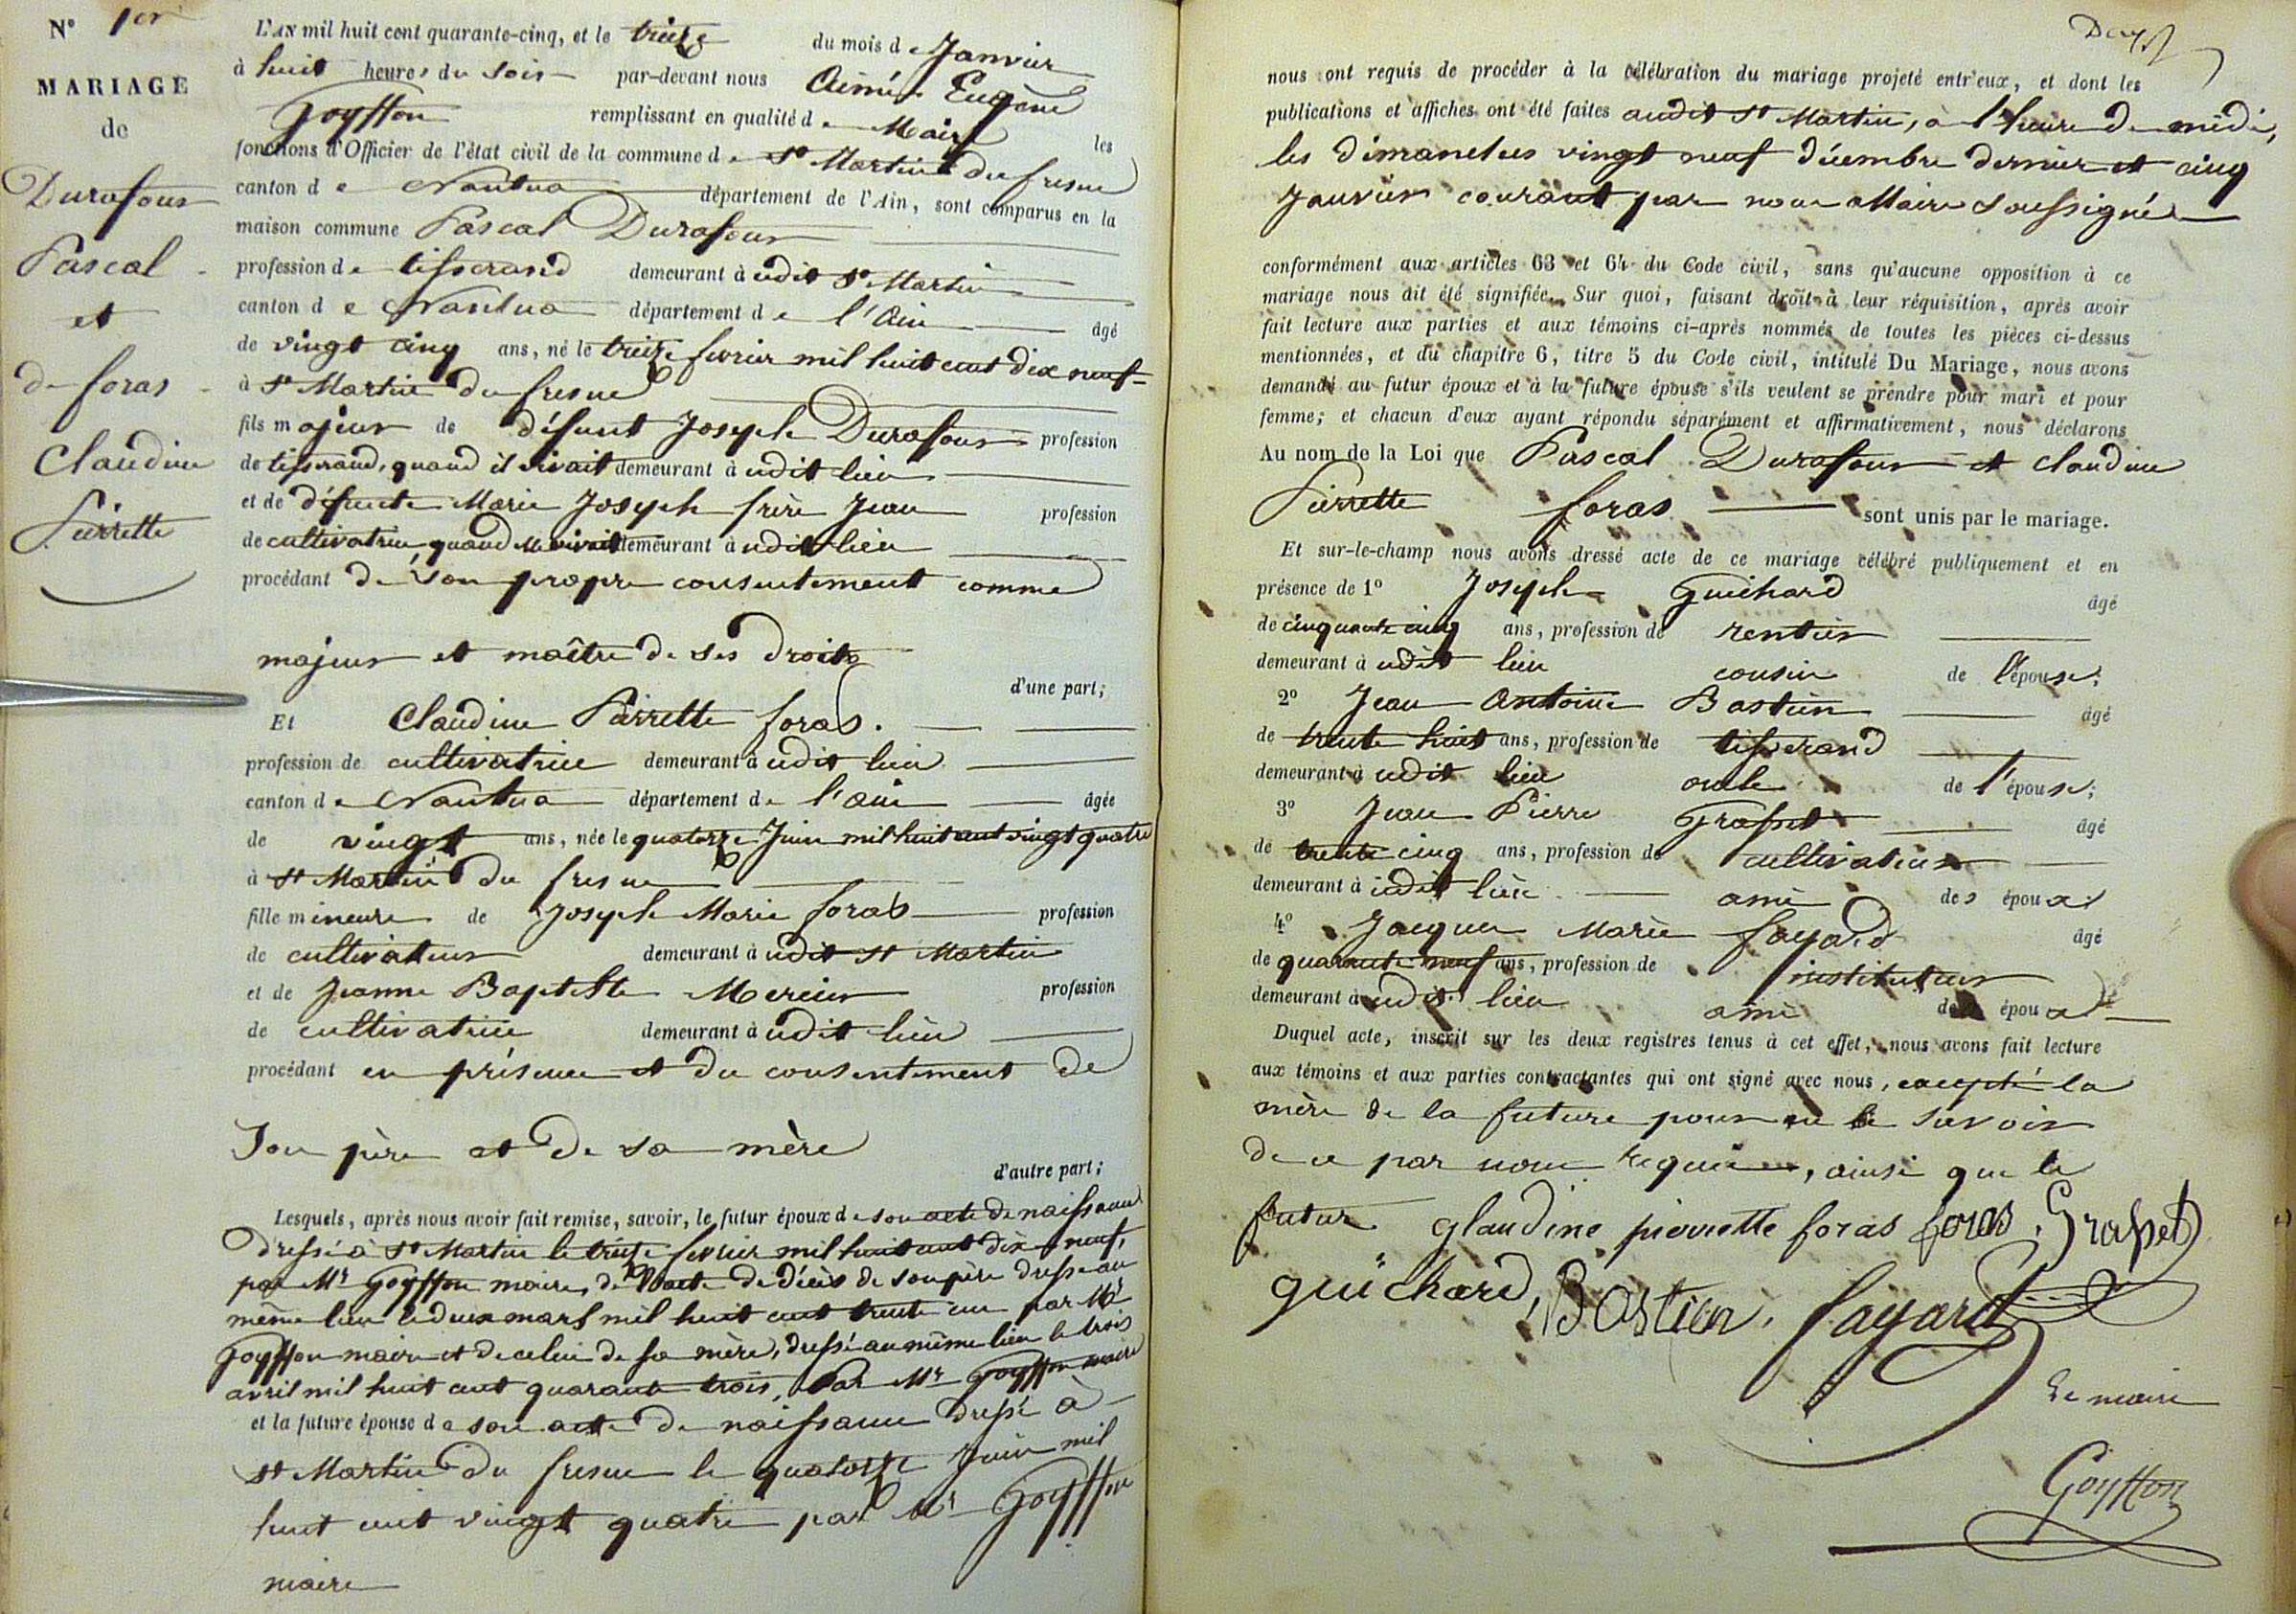 N° 1er
MARIAGE
de
Durafour
Pascal
et
de foras
Claudine
Pierrette
L'AN mil huit cent quarante-cinq, et le treize du mois de Janvier
à huit heures du soir par-devant nous Aimé Eugène
Goyffon remplissant en qualité de Maire les
fonctions d'Officier de l'état civil de la commune de St Martin du fresne
canton de Nantua département de l'Ain, sont comparus en la
maison commune Pascal Durafour
profession de tisserand demeurant à udit St Martin
canton de Nantua département de l'Ain âgé
de vingt cinq ans, né le treize fevrier mil huit cent dix neuf
à St Martin du fresne
fils majeur de défunt Joseph Durafour profession
de tisserand, quand il vivait demeurant à udit lieu
et de défunte Marie Joseph frère Jean profession
de cultivatrice, quand elle vivait demeurant à udit lieu
procédant de son propre consentement comme
majeur et maître de ses droits
d'une part;
Et Claudine Pierrette foras.
profession de cultivatrice demeurant à udit lieu
canton de Nantua département de l'ain âgée
de vingt ans, née le quatorze Juin mil huit cent vingt quatre
à St Martin du fresne
fille mineure de Joseph Marie foras profession
de cultivateur demeurant à udit St Martin
et de Jeanne Baptiste Mercier profession
de cultivatrice demeurant à udit lieu
procédant en présence et du consentement de
son père et de sa mère
d'autre part;
Lesquels, après nous avoir fait remise, savoir, le futur époux de son acte de naissance
dressé à St Martin le treize fevrier mil huit cent dix neuf,
par Mr Goyffon maire, de l'acte de décès de son père dressé au
même lieu le deux mars mil huit cent trente un par Mr
Goyffon maire et de celui de sa mère, dressé au même lieu le trois
avril mil huit cent quarante trois, Par Mr Goyffon maire
et la future épouse de son acte de naissance dressé à
St Martin du fresne le quatorze Juin mil
huit cent vingt quatre par Mr Goyffon
maire
nous ont requis de procéder à la célébration du mariage projeté entr'eux, et dont les
publications et affiches ont été faites audit St Martin, à l'heure de midi,
les dimanches vingt neuf décembre dernier et cinq
Janvier courant par nous Maire soussigné
conformément aux articles 63 et 64 du Code civil, sans qu'aucune opposition à ce
mariage nous ait été signifiée. Sur quoi, faisant droit à leur réquisition, après avoir
fait lecture aux parties et aux témoins ci-après nommés de toutes les pièces ci-dessus
mentionnées, et du chapitre 6, titre 5 du Code civil, intitulé Du Mariage, nous avons
demandé au futur époux et à la future épouse s'ils veulent se prendre pour mari et pour
femme; et chacun d'eux ayant répondu séparément et affirmativement, nous déclarons
Au nom de la Loi que Pascal Durafour et claudine
Pierrette foras sont unis par le mariage.
Et sur-le-champ nous avons dressé acte de ce mariage célébré publiquement et en
présence de 1° Joseph Guichard âgé
de cinquante cinq ans, profession de rentier
demeurant à udit lieu cousin de l'épouse;
2° Jean Antoine Bastien âgé
de trente huit ans, profession de tisserand
demeurant à udit lieu oncle de l'épouse;
3° Jean Pierre Grasset âgé
de trente cinq ans, profession de cultivateur
demeurant à udit lieu ami des époux;
4° Jacques Marie fayard âgé
de quarante neuf ans, profession de instituteur
demeurant à udit lieu ami des époux
Duquel acte, inscrit sur les deux registres tenus à cet effet, nous avons fait lecture
aux témoins et aux parties contractantes qui ont signé avec nous, excepté la
mère de la future pour ne le savoir
de ce par nous requise, ainsi que le
futur. glaudine pierrette foras foras. Grasset
guichard, Bastien, fayard
Le maire
Goyffon